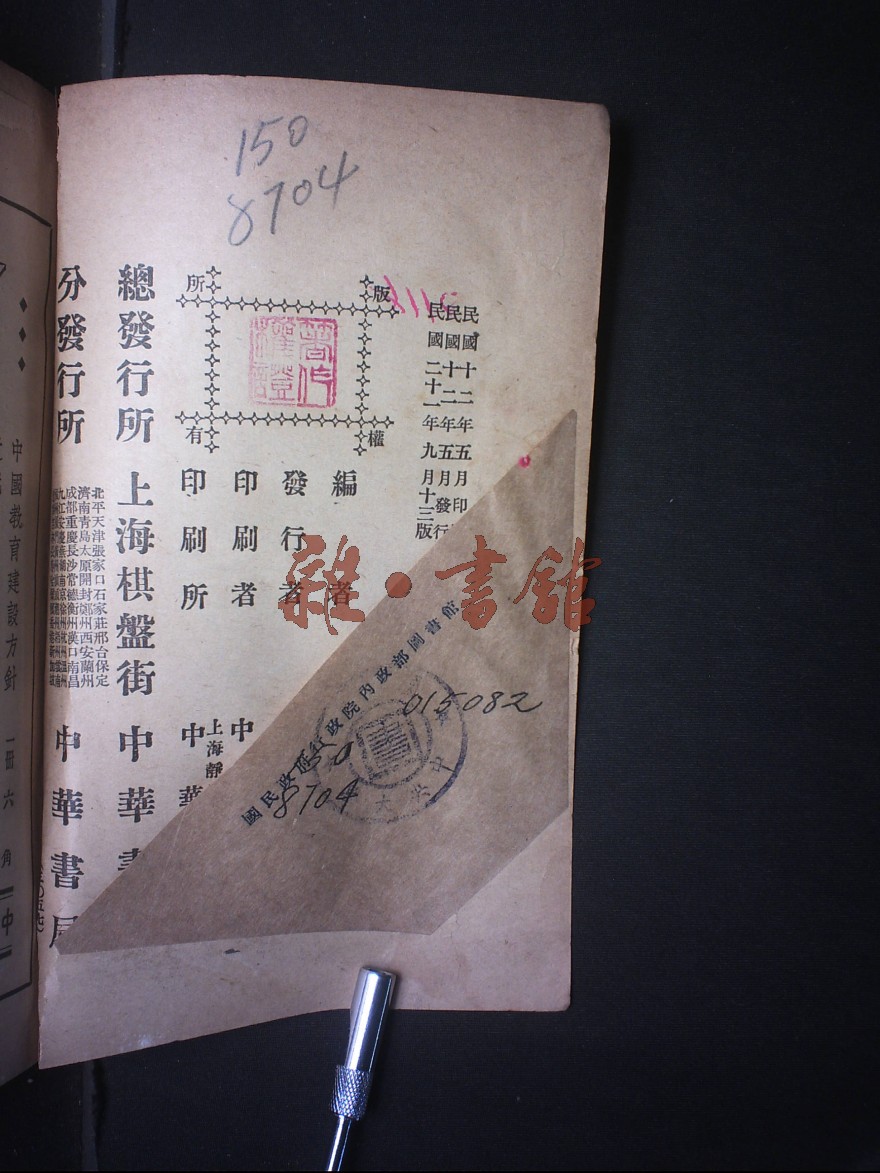 150
8704
民國十二年五月印
民國十二年五月發行
民國二十一年九月十三版
版權所有
著作權證
編者
發行者
印刷者 中
印刷所 上海靜
中華
總發行所 上海棋盤街 中華書
分發行所
北平天津張家口石家莊邢台保定
濟南青島太原開封鄭州西安蘭州
成都重慶長沙常德衡州漢口南昌
中華書局
雜·書館
國民政府行政院內政部圖書館
015082
150
8704
中國教育建設方針 一冊 六角
中